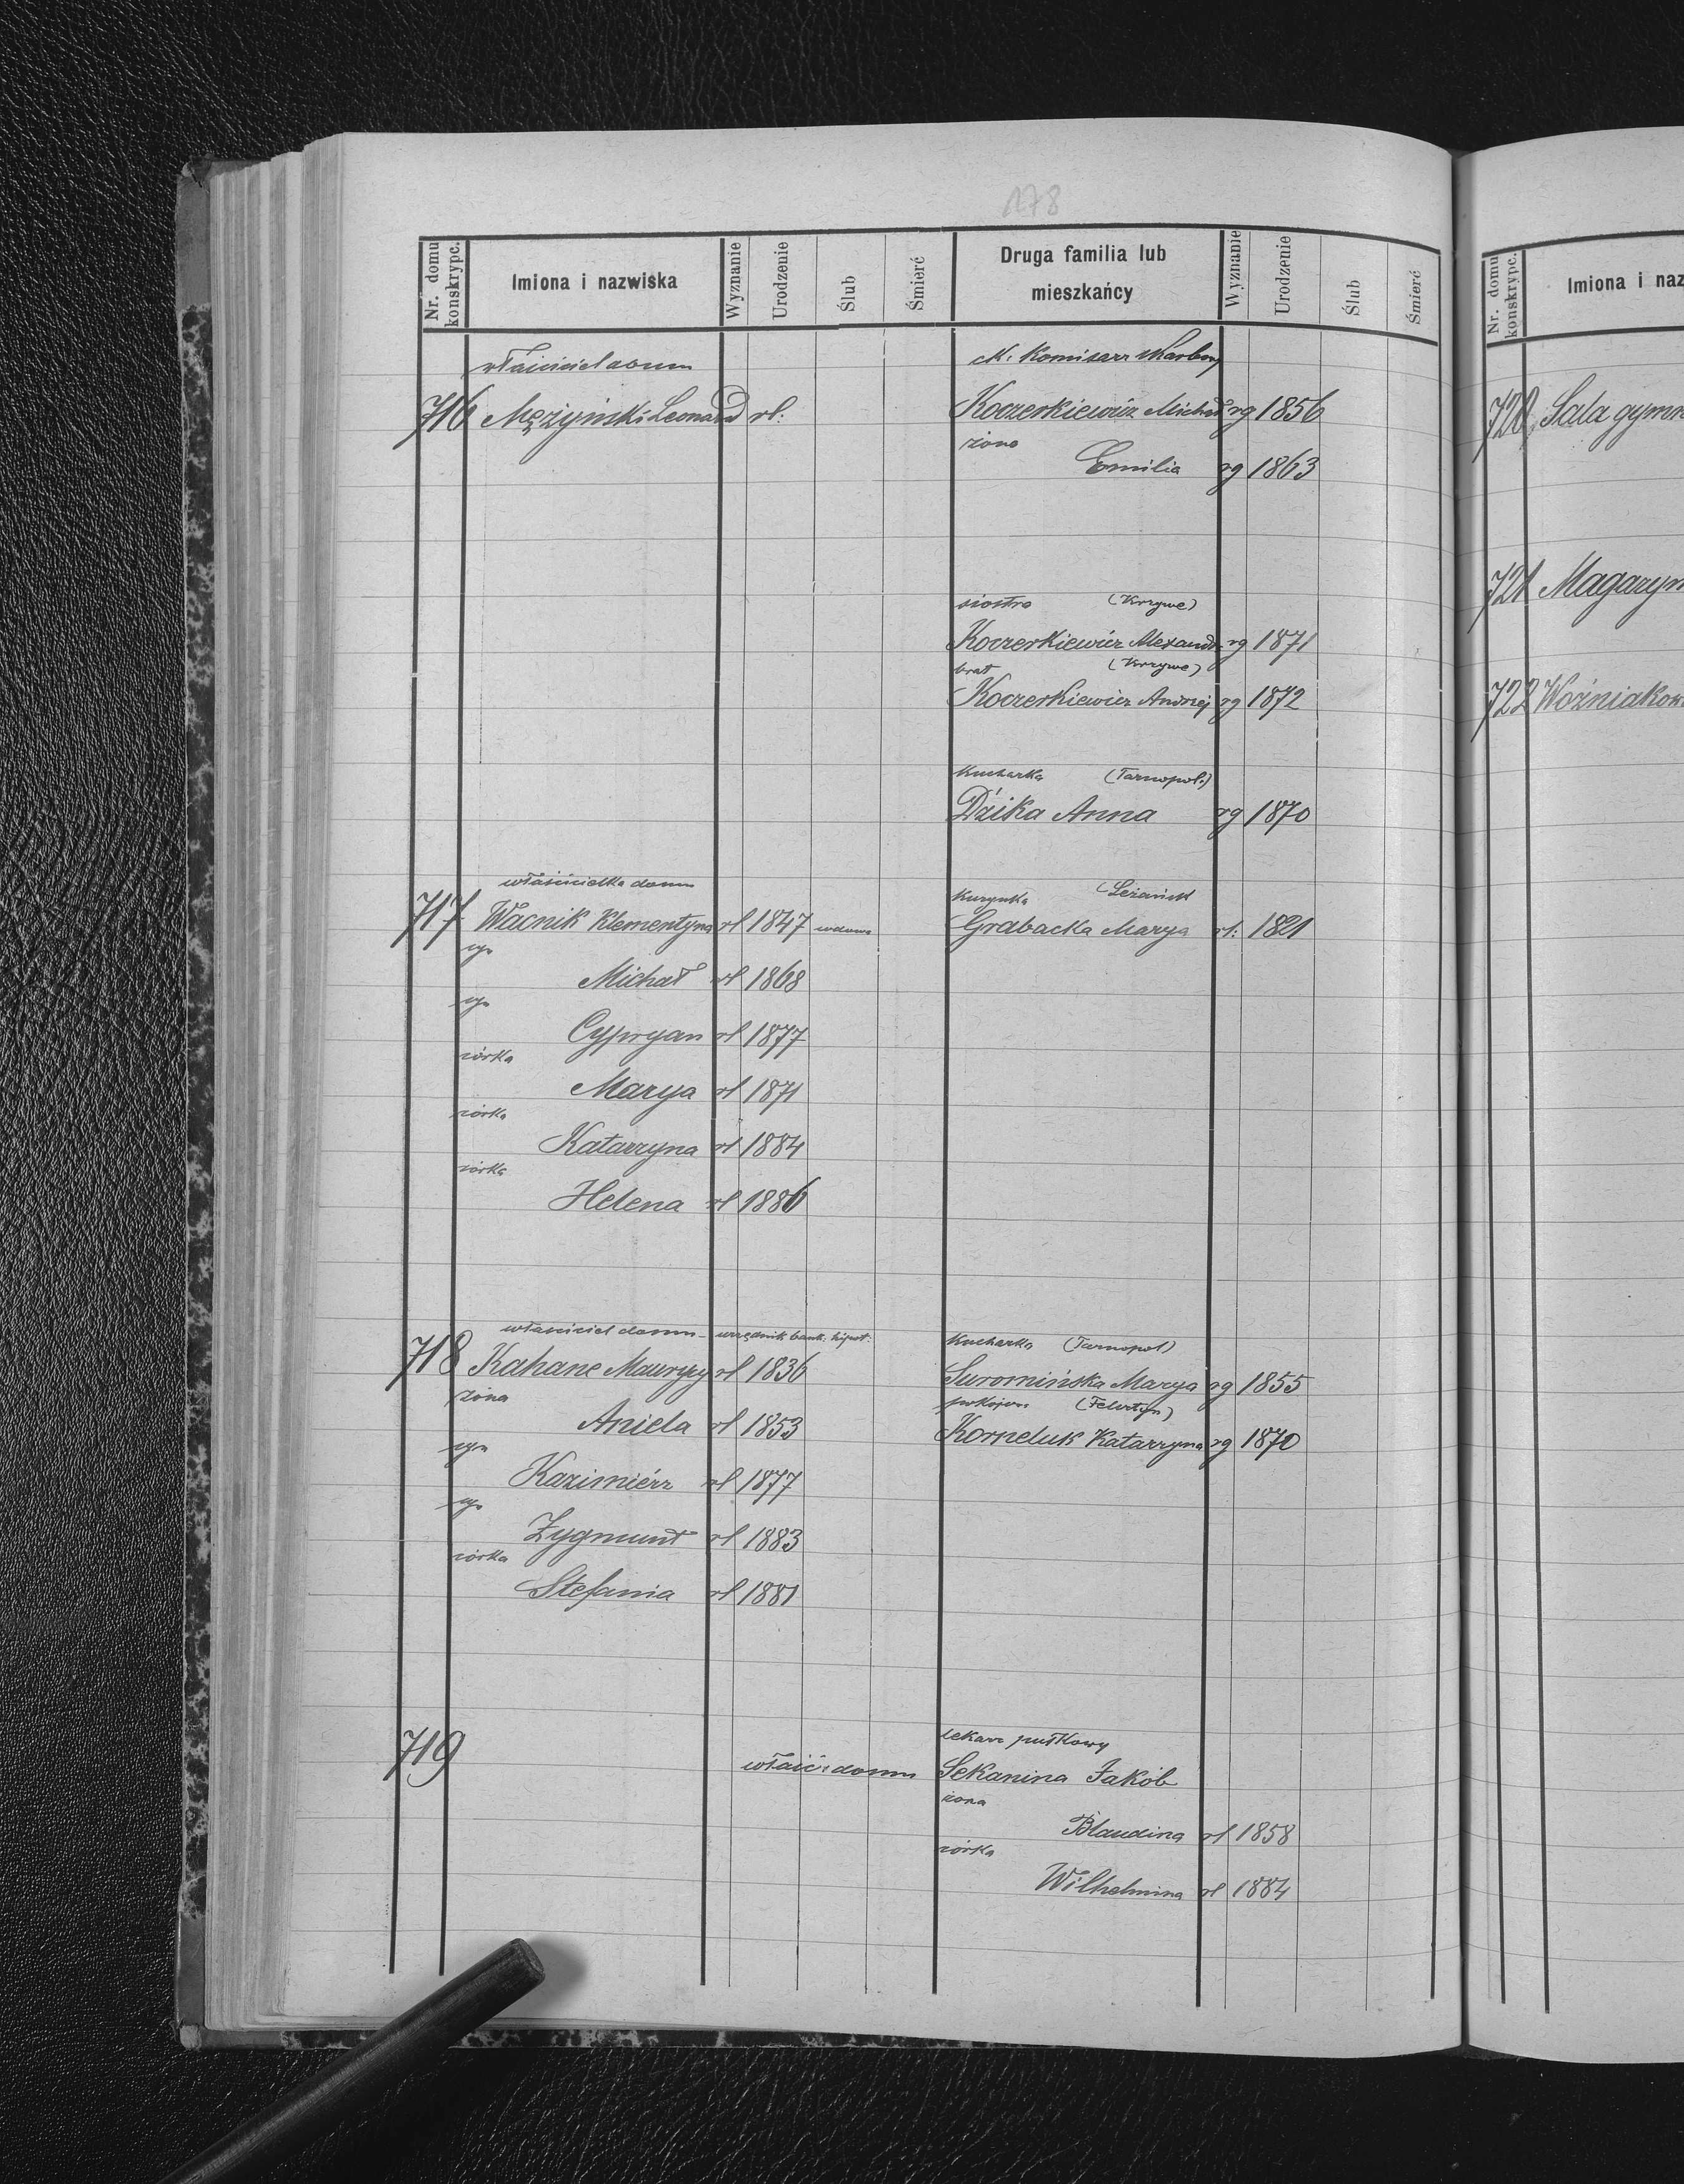 178
Nr. domu konskrypc.
Imiona i nazwiska
Wyznanie
Urodzenie
Ślub
Śmierć
Druga familia lub mieszkańcy
Wyznanie
Urodzenie
Ślub
Śmierć
właściciel domu
716 Mężyński Leonard rl:
ck. Komisarz skarbowy
Koczerkiewicz Michał rg 1856
żona
Emilia rg 1863
siostra (Krzywe)
Koczerkiewicz Alexandr rg 1871
brat (Krzywe)
Koczerkiewicz Andrzej rg 1872
Kucharka (Tarnopol.)
Dzika Anna rg 1870
właścicielka domu
717 Wacnik Klementyna rl 1847 wdowa
syn
Michał rl 1868
syn
Cypryan rl 1877
córka
Marya rl 1871
córka
Katarzyna rl 1884
córka
Helena rl 1886
Kuzynka Leżańsk
Grabacka Marya rl: 1821
właściciel domu - urzędnik bank. hipot:
718 Kahane Maurycy rl 1836
żona
Aniela rl 1853
syn
Kazimiérz rl 1877
syn
Zygmunt rl 1883
córka
Stefania rl 1881
Kucharka (Tarnopol)
Suromińska Marya rg 1855
pokojow (Felsztyn)
Korneluk Katarzyna rg 1870
719
właśc: domu
lekarz pułkowy
Sekanina Jakób
żona
Blandina rl 1858
córka
Wilhelmina rl 1884
Nr. domu konskrypc.
Imiona i naz
720 Sala gymn
721 Magazyn
722 Woźniakow